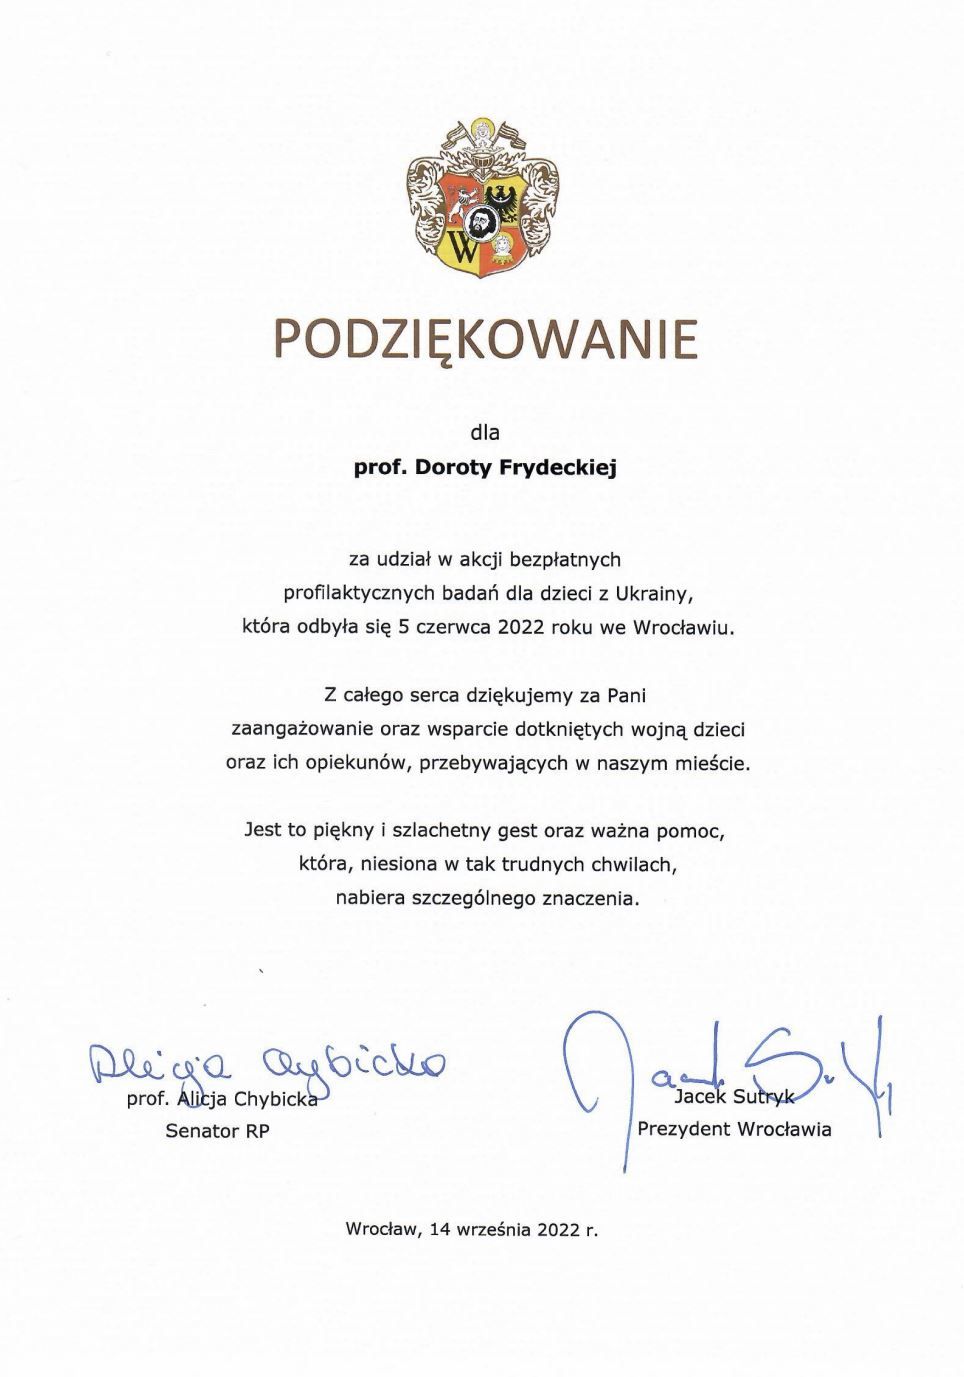 W
PODZIĘKOWANIE
dla
prof. Doroty Frydeckiej
za udział w akcji bezpłatnych
profilaktycznych badań dla dzieci z Ukrainy,
która odbyła się 5 czerwca 2022 roku we Wrocławiu.
Z całego serca dziękujemy za Pani
zaangażowanie oraz wsparcie dotkniętych wojną dzieci
oraz ich opiekunów, przebywających w naszym mieście.
Jest to piękny i szlachetny gest oraz ważna pomoc,
która, niesiona w tak trudnych chwilach,
nabiera szczególnego znaczenia.
Alicja Chybicka
prof. Alicja Chybicka
Senator RP
Jacek Sutryk
Jacek Sutryk
Prezydent Wrocławia
Wrocław, 14 września 2022 r.